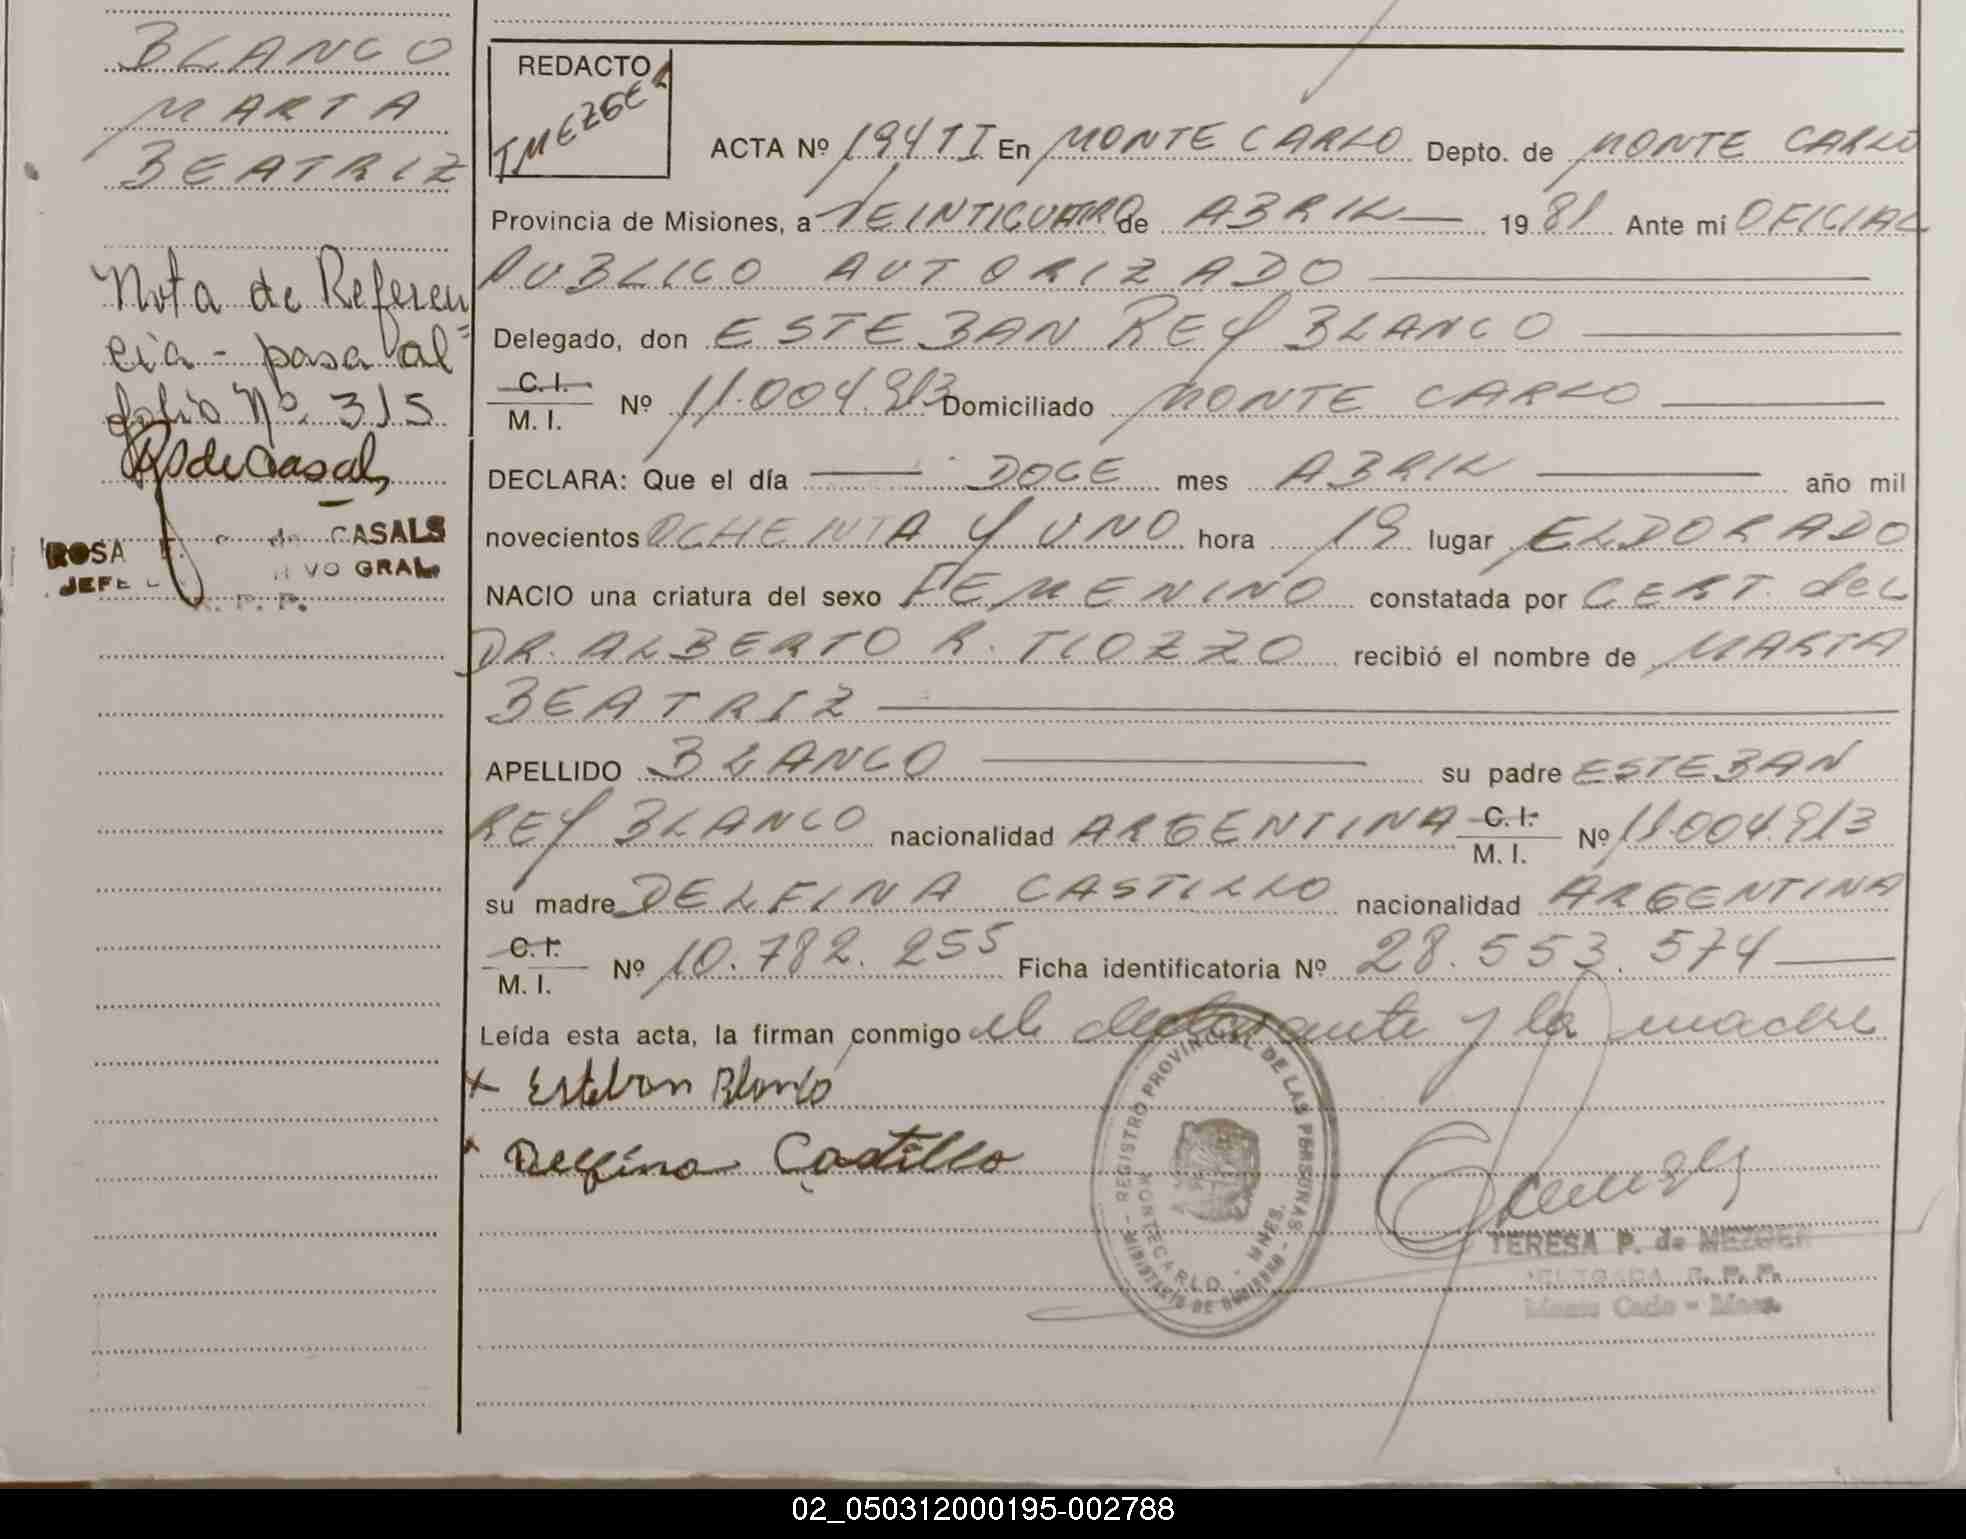 BLANCO
MARTA
BEATRIZ
Nota de Referen
cia - pasa al
folio Nº 315
ROSA de CASALS
JEFE VO GRAL.
R. P. P.
REDACTO
TMEZGER
ACTA Nº 194TI En MONTE CARLO Depto. de MONTE CARLO
Provincia de Misiones, a VEINTICUATRO de ABRIL 1981 Ante mí OFICIAL
PUBLICO AUTORIZADO
Delegado, don ESTEBAN REY BLANCO
C. I.
M. I. Nº 11.004.913 Domiciliado MONTE CARLO
DECLARA: Que el día DOCE mes ABRIL año mil
novecientos OCHENTA Y UNO hora 19 lugar ELDORADO
NACIO una criatura del sexo FEMENINO constatada por CERT. del
DR. ALBERTO R. TIOZZO recibió el nombre de MARTA
BEATRIZ
APELLIDO BLANCO su padre ESTEBAN
REY BLANCO nacionalidad ARGENTINA C. I. M. I. Nº 11.004.913
su madre DELFINA CASTILLO nacionalidad ARGENTINA
C. I.
M. I. Nº 10.782.255 Ficha identificatoria Nº 28.553.574
Leída esta acta, la firman conmigo el declarante y la madre
x Esteban Blanco
x Delfina Castillo
REGISTRO PROVINCIAL DE LAS PERSONAS
MONTECARLO - MNES.
MINISTERIO DE GOBIERNO
TERESA P. de MEZGER
DELEGADA R. P. P.
Monte Carlo - Mnes.
02_050312000195-002788